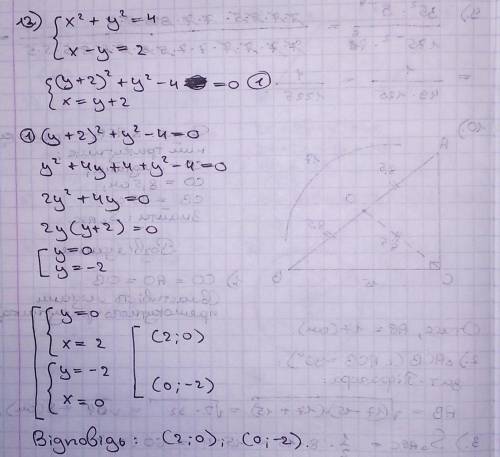 12) { x² + y² = 4
x - y = 2
{ (y+2)² + y² - 4 = 0 ①
x = y+2
① (y+2)² + y² - 4 = 0
y² + 4y + 4 + y² - 4 = 0
2y² + 4y = 0
2y(y+2) = 0
[ y = 0
y = -2
[ { y = 0
x = 2
{ y = -2
x = 0
[ (2; 0)
(0; -2)
Відповідь: (2; 0); (0; -2).